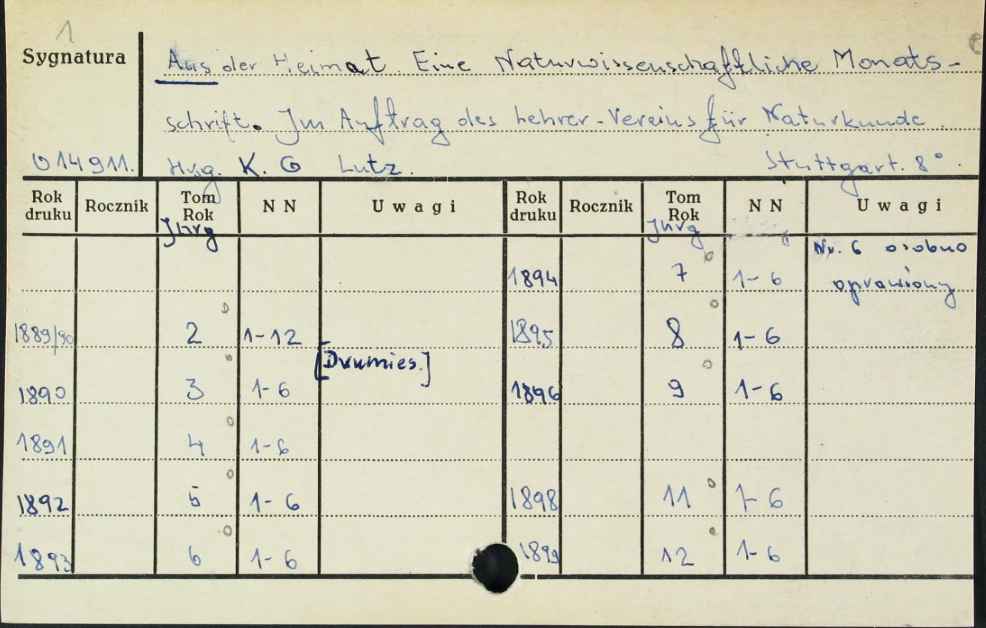 1
Sygnatura
Aus der Heimat. Eine Naturwissenschaftliche Monats-
schrift. Im Auftrag des Lehrer-Vereins für Naturkunde.
014911. Hrsg. K. G Lutz. Stuttgart. 8°.
Rok druku Rocznik Tom Rok NN Uwagi Rok druku Rocznik Tom Rok NN Uwagi
Jhrg Jhrg
1894 7 1-6 Nr. 6 osobno oprawiony
1889/90 2 1-12 1895 8 1-6
[Dwumies.]
1890 3 1-6 1896 9 1-6
1891 4 1-6
1892 5 1-6 1898 11 1-6
1893 6 1-6 1899 12 1-6